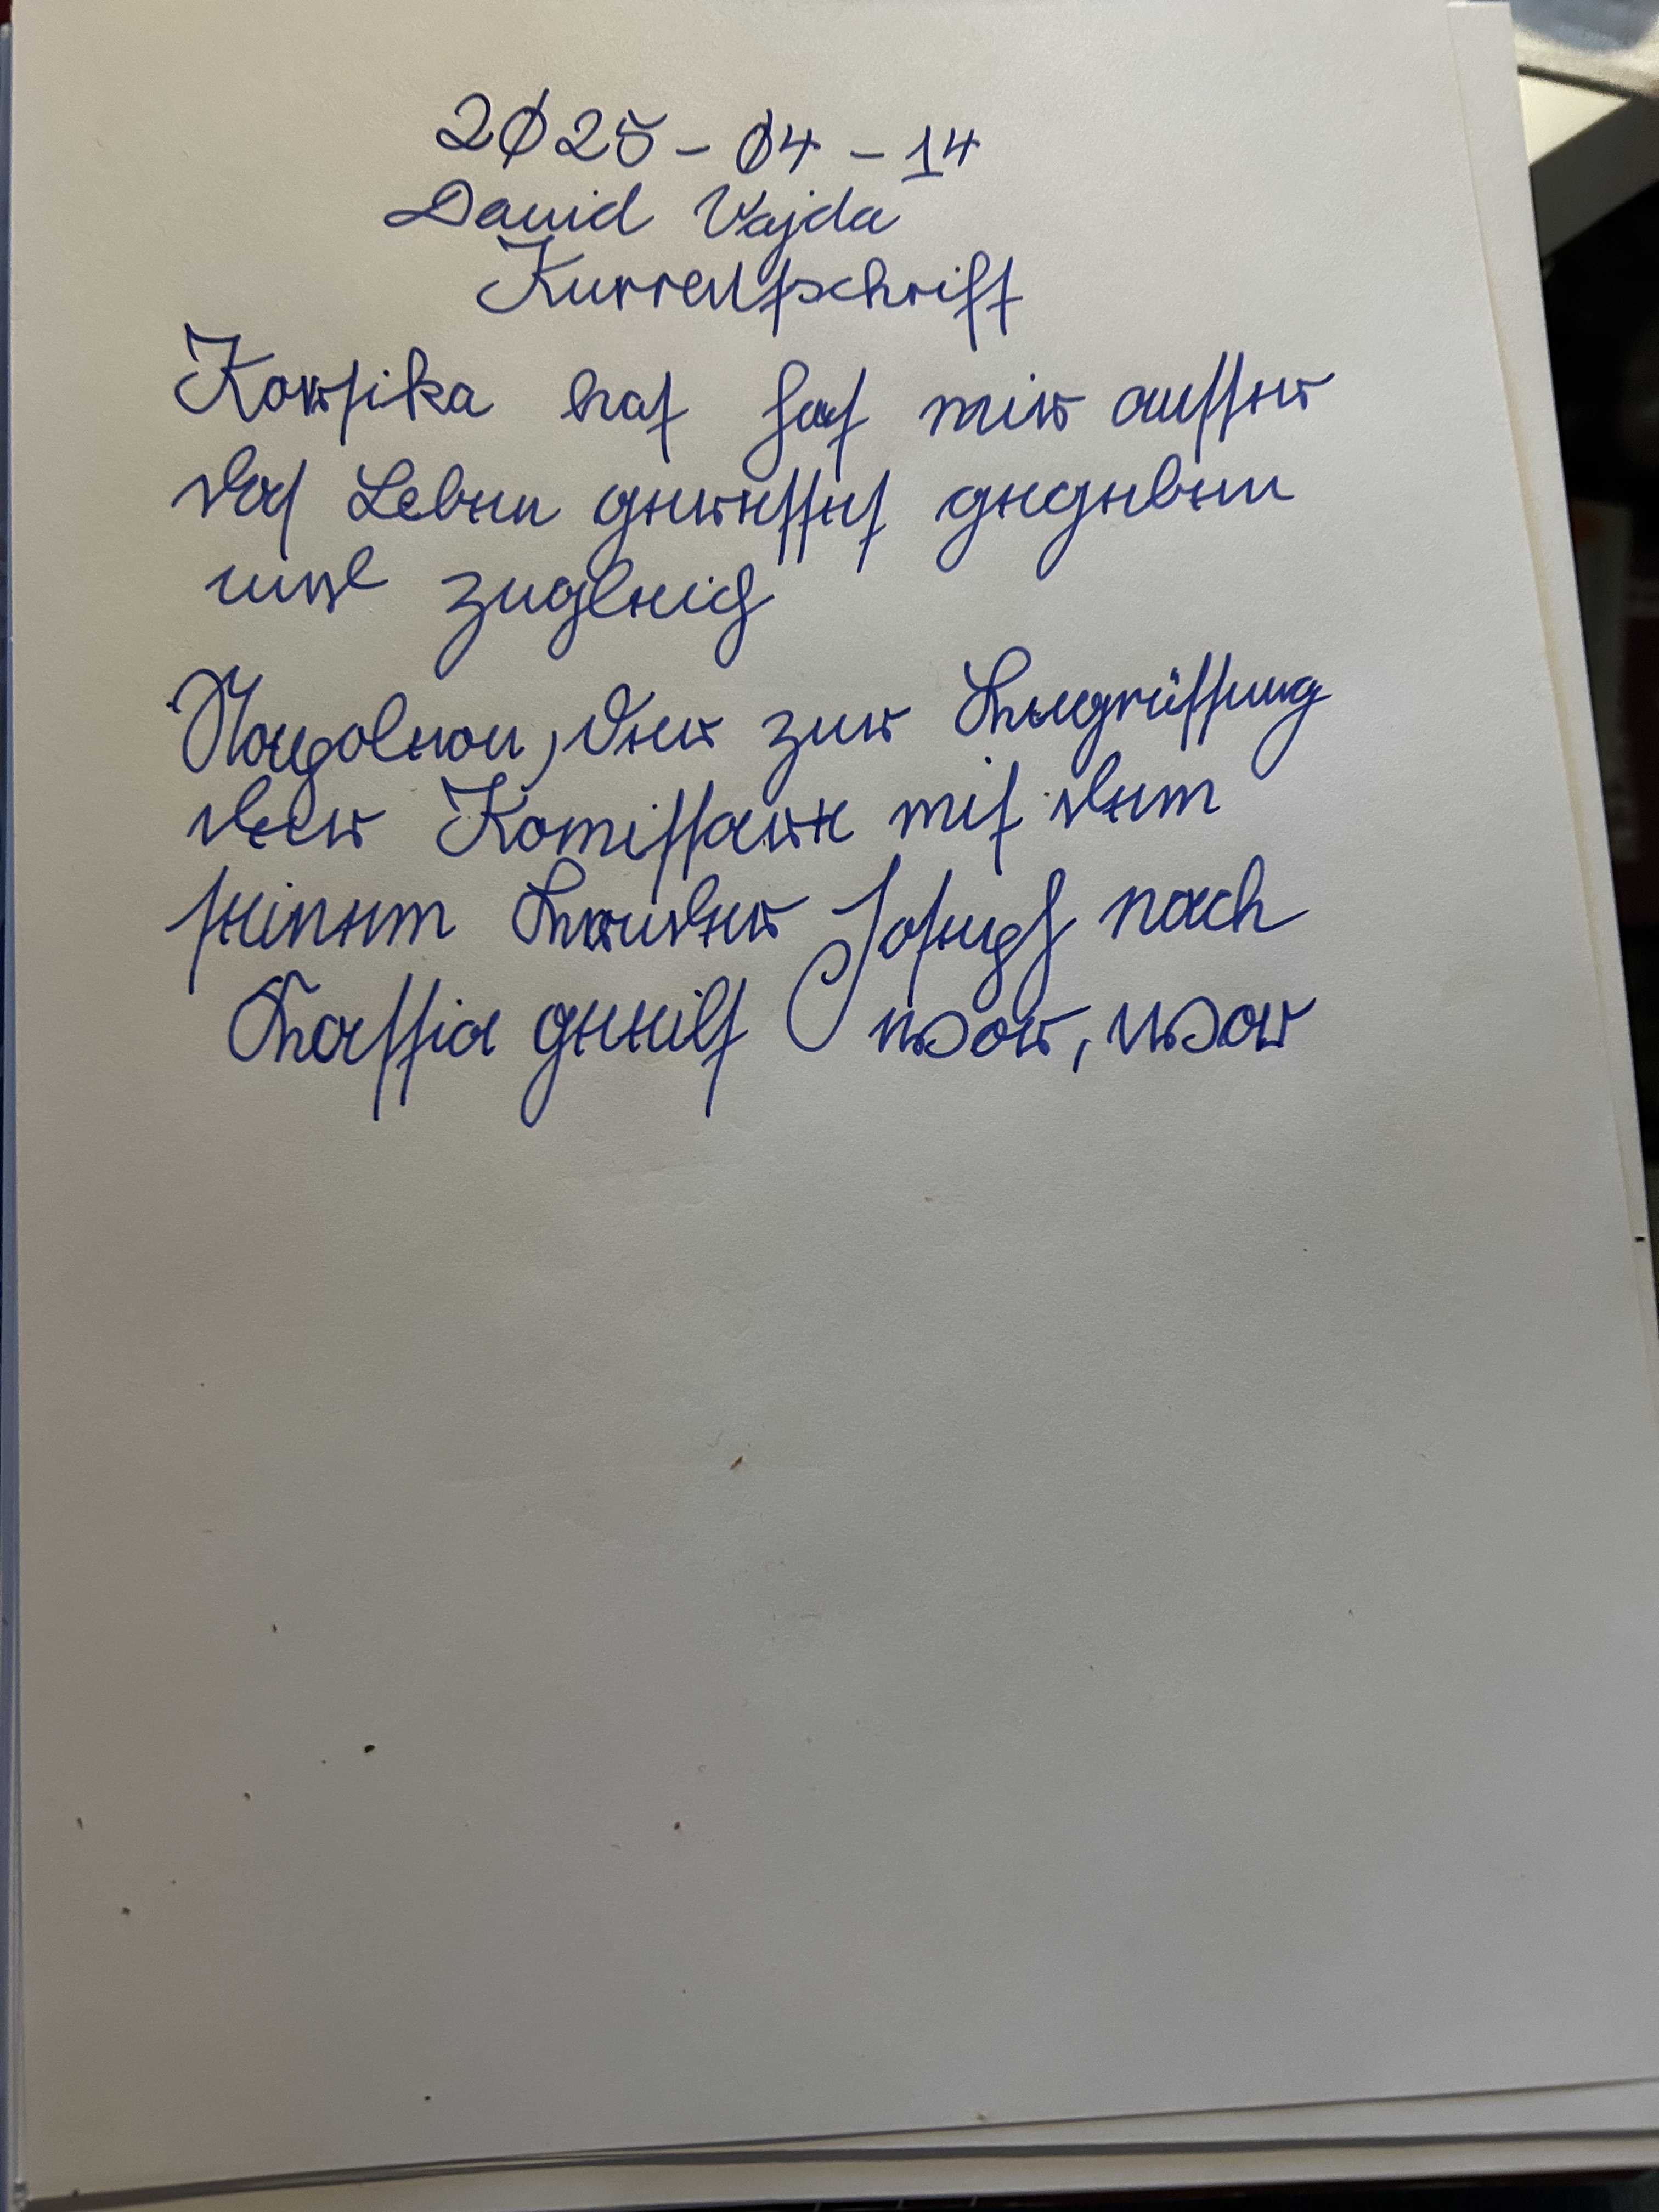 2025-04-14
David Vajda
Kurrentschrift
Korsika hat hat mir ausser
das Leben gegeben
und zugleich
Napoleon, der zur Begrüssung
der Komissare mit dem
seinem Bruder Joseph nach
Bastia geeilt war, war